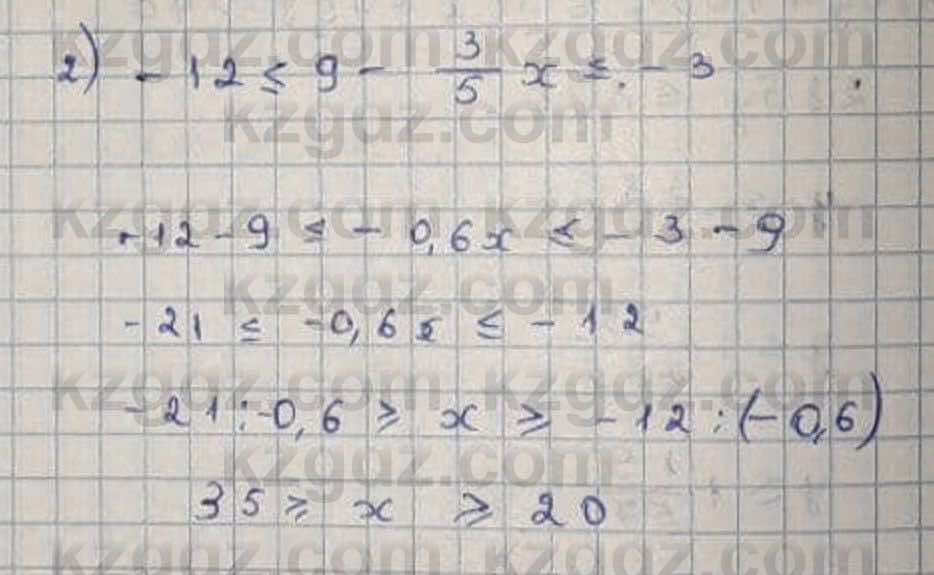 kzgdz.com kzgdz.com
2) - 12 ≤ 9 - 3/5 x ≤ - 3
kzgdz.com
kzgdz.com kzgdz.com
-12-9 ≤ - 0,6x ≤ - 3 - 9
kzgdz.com
-21 ≤ -0,6x ≤ - 12
kzgdz.com kzgdz.com
-21:-0,6 ≥ x ≥ -12:(-0,6)
kzgdz.com
35 ≥ x ≥ 20
kzgdz.com kzgdz.com